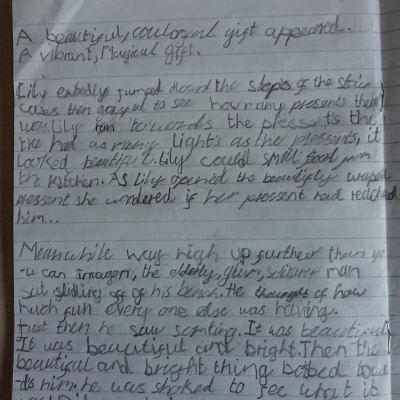 A beautiful, coulorful gift appeared.
A vibrant, Magical gift.
Lily exitedly jumped down the steps of the stair
cases then gasped to see how many presents there
was. Lily ran towards the pressents the
tree had as many lights as the presents, it
looked beautiful. Lily could smell food from
the kitchen. As Lily opened the beautifly wraped
pressent she wondered if her pressent had reached
him...
Meanwhile way high up further than yo
-u can imagen, the elderly, glum, man
sat sliding off of his bench. He thought of how
much fun every one else was having.
Just then he saw somting. It was beautiful
It was beautiful and bright. Then the
beautiful and bright thing bobed towa
-ds him. he was shoked to see what it